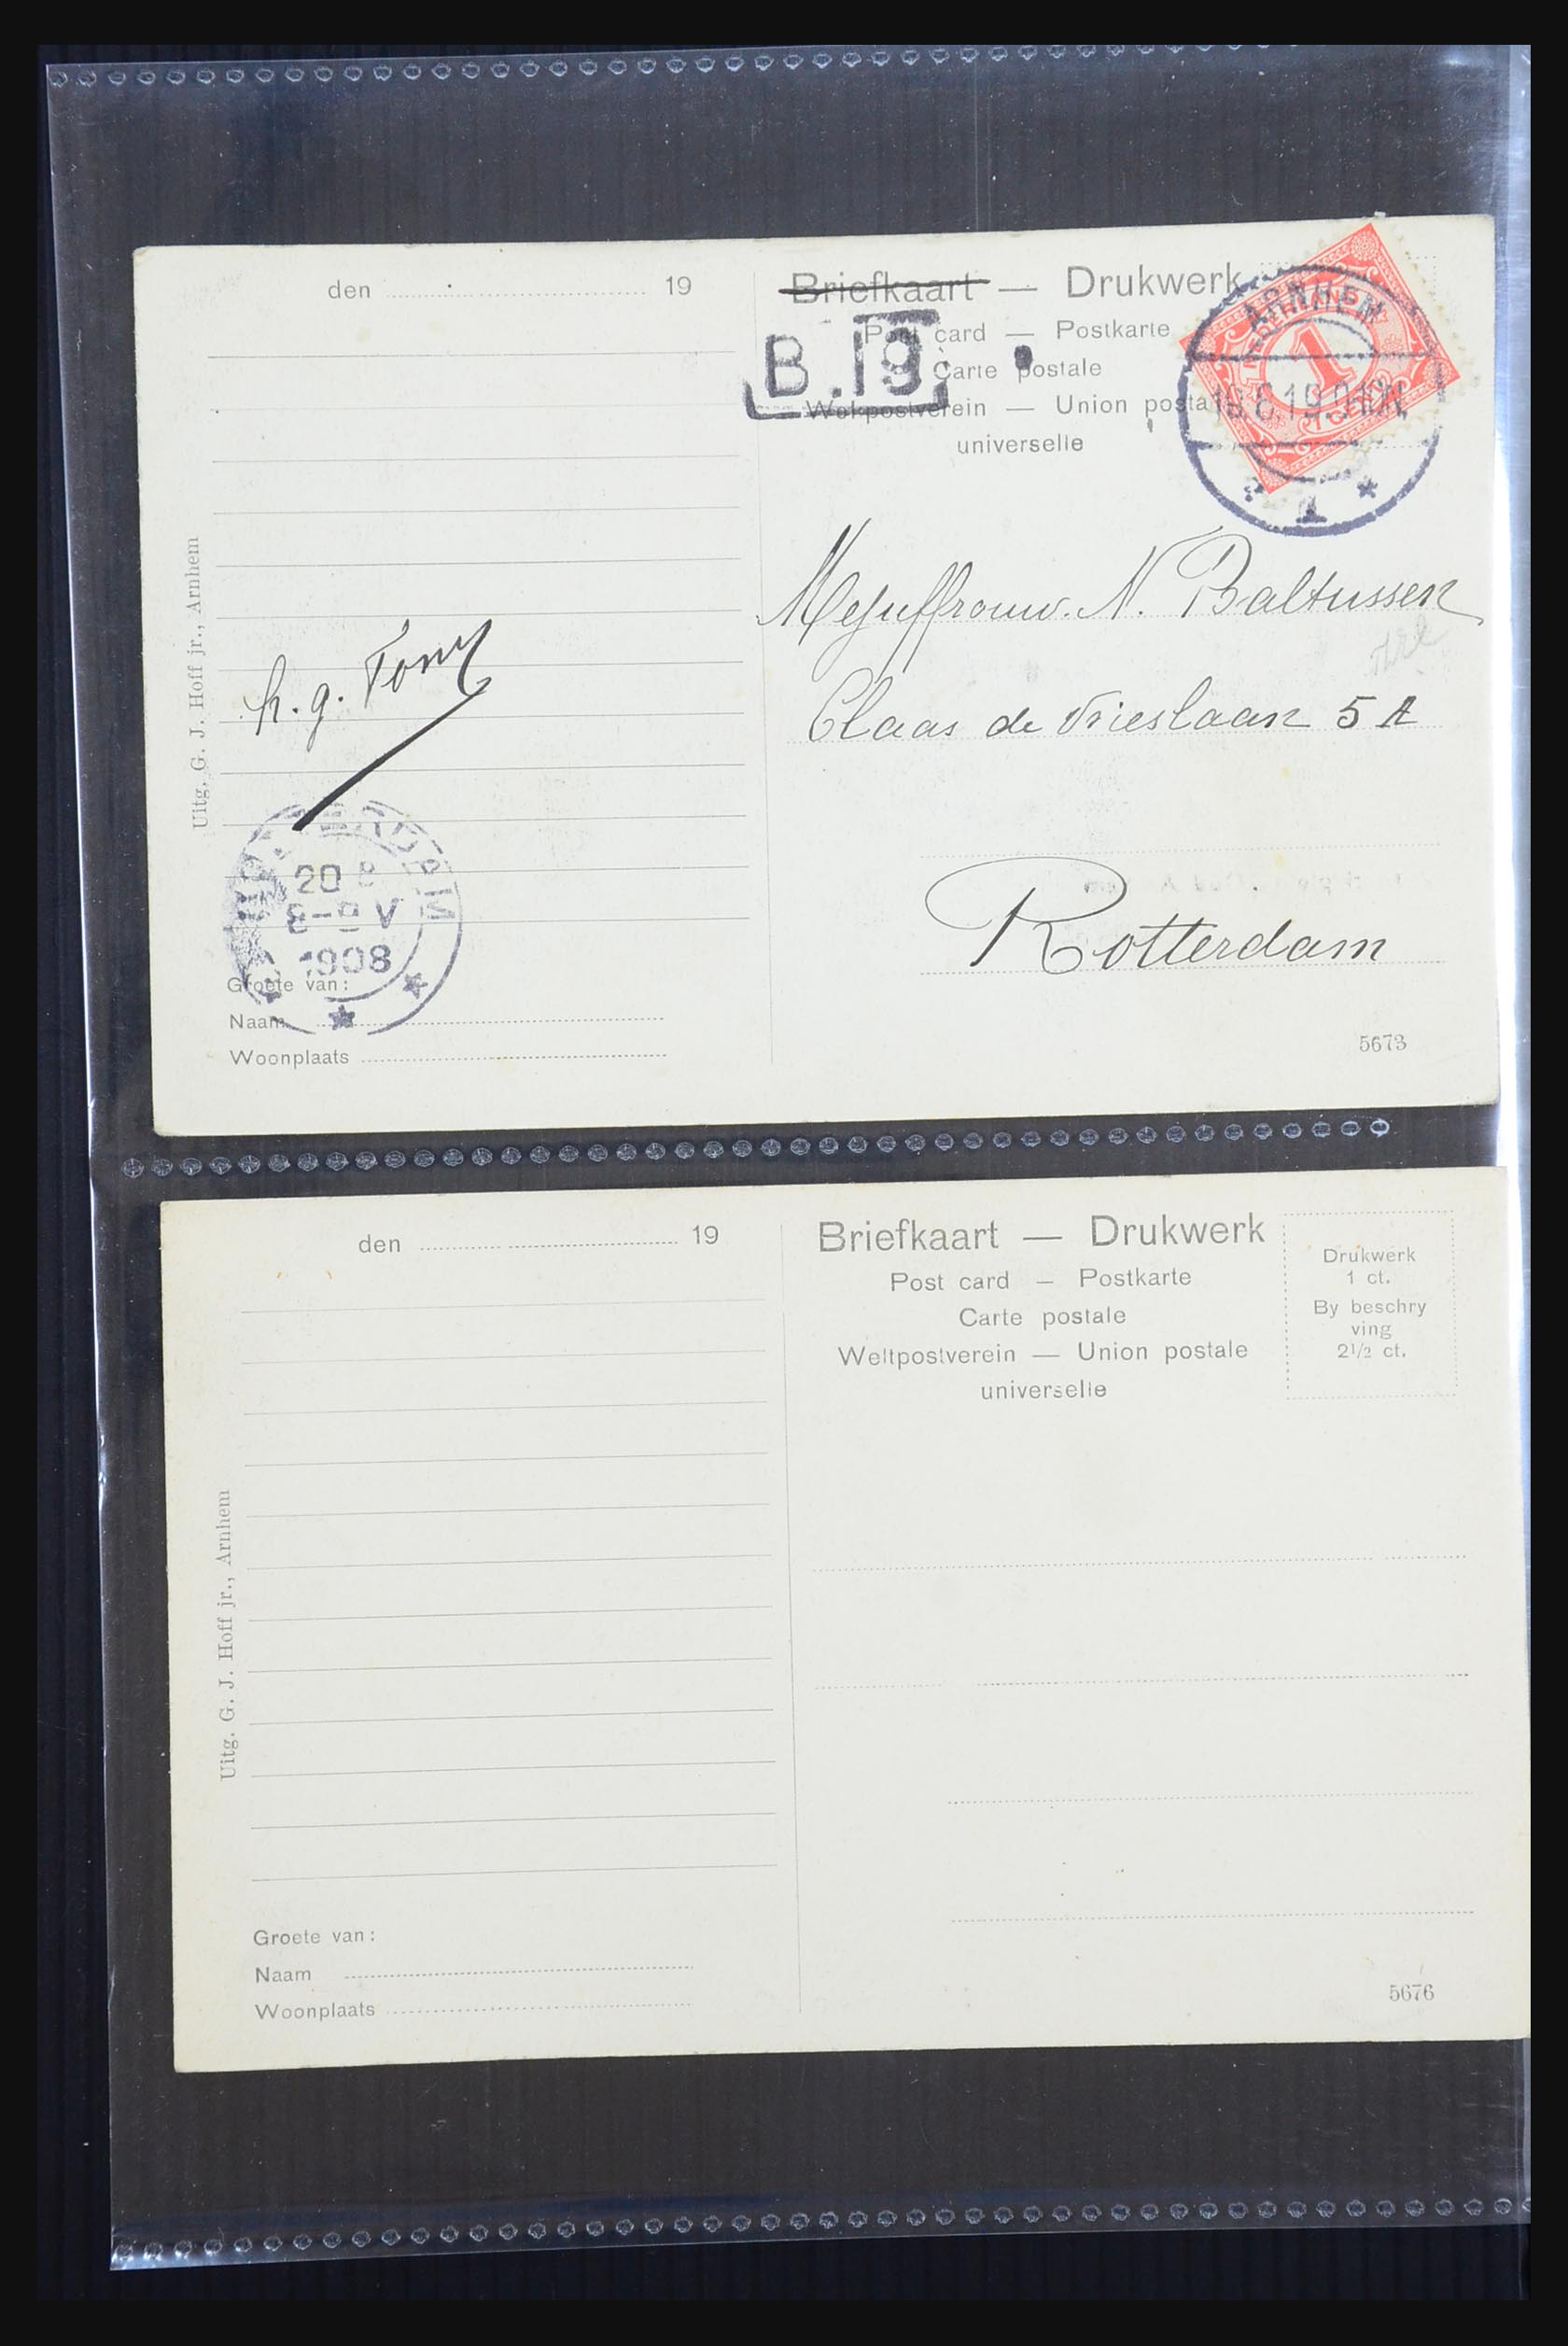 den 19
Briefkaart — Drukwerk
Post card — Postkarte
Carte postale
Weltpostverein — Union postale
universelle
B.19
ARNHEM
NEDERLAND
1
CENT
1
Mejuffrouw. N. Baltussen
Claas de Vrieslaan 5 A
Rotterdam
h. g. Tony
Uitg. G. J. Hoff jr., Arnhem
20 8
8-9 V
1908
Groete van:
Naam
Woonplaats
5673
den 19
Briefkaart — Drukwerk
Post card — Postkarte
Carte postale
Weltpostverein — Union postale
universelle
Drukwerk
1 ct.
By beschry
ving
2½ ct.
Uitg. G. J. Hoff jr., Arnhem
Groete van:
Naam
Woonplaats
5676